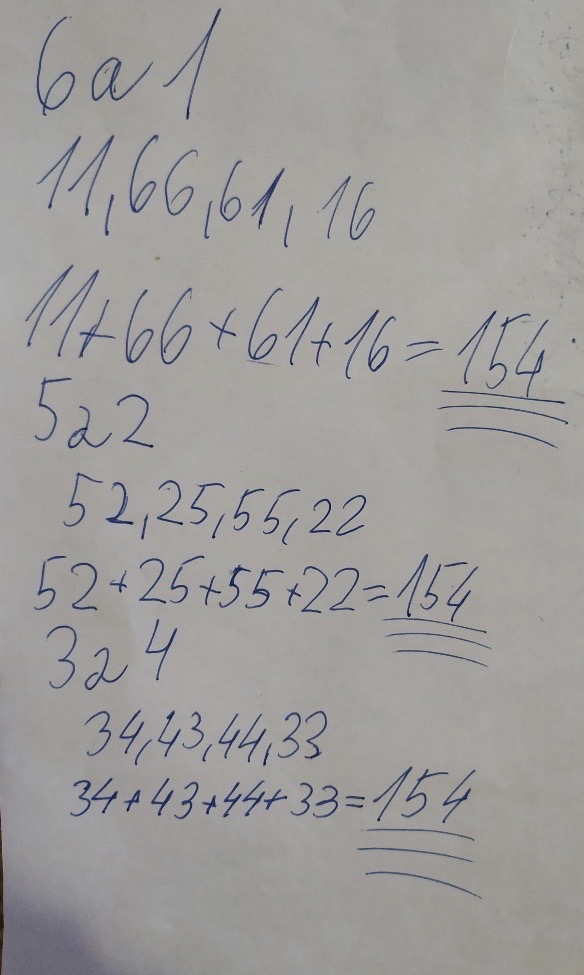 6 a 1
11, 66, 61, 16
11+66+61+16=154
5 a 2
52, 25, 55, 22
52+25+55+22=154
3 a 4
34, 43, 44, 33
34+43+44+33=154